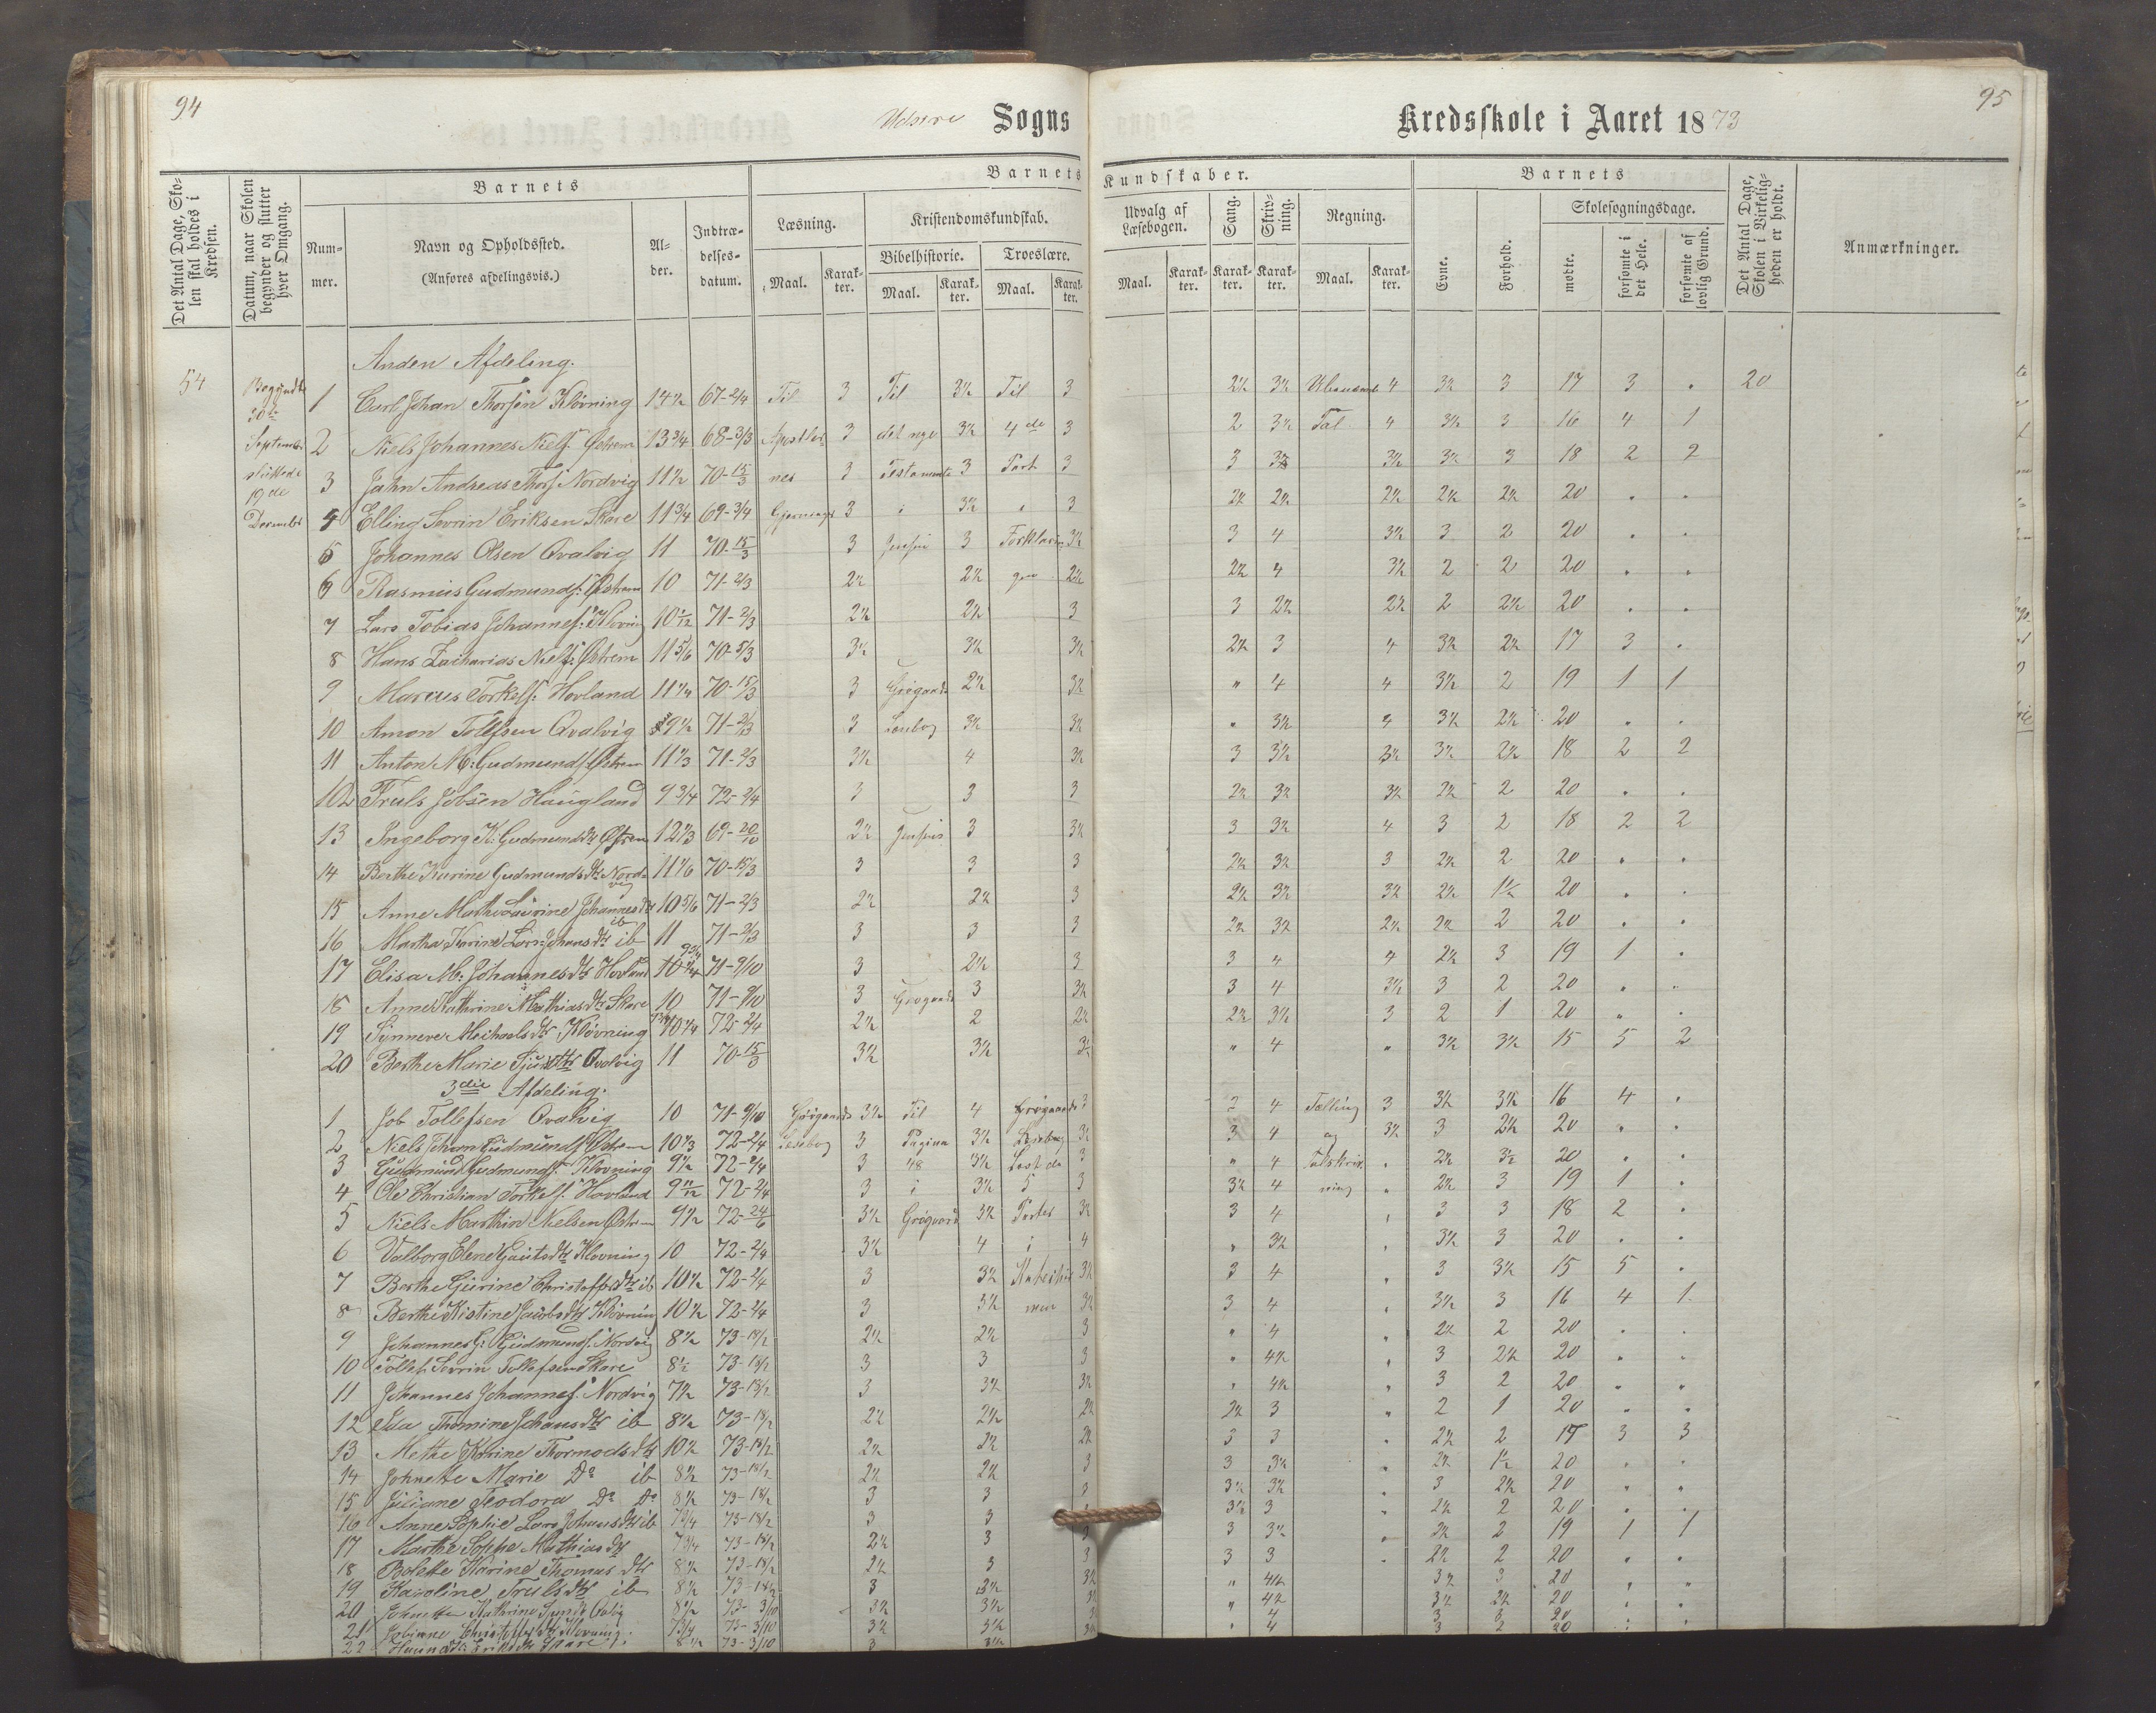 94
Udsire Sogns
Kredsskole i Aaret 1873
95
Det Antal Dage, Skolen skal holdes i Kredsen.
Datum, naar Skolen begynder og slutter hver Omgang.
Barnets
Nummer.
Navn og Opholdssted.
(Anføres afdelingsvis.)
Alder.
Indtrædelsesdatum.
Barnets
Kundskaber.
Læsning.
Maal.
Karakter.
Kristendomskundskab.
Bibelhistorie.
Maal.
Karakter.
Troeslære.
Maal.
Karakter.
Udvalg af Læsebogen.
Maal.
Karakter.
Sang.
Karakter.
Skrivning.
Karakter.
Regning.
Maal.
Karakter.
Barnets
Evne.
Forhold.
Skolesøgningsdage.
mødte.
forsømte i det Hele.
forsømte af lovlig Grund.
Det Antal Dage, Skolen i Virkeligheden er holdt.
Anmærkninger.
Anden Afdeling.
54 Begyndte 1 Carl Johan Thorsen Kløvning 14½ 67-2/4 Til 3 Til 3½ Til 3 2½ 3½ 4 3½ 3 17 3 . 20
September 2 Niels Johannes Niels. Østrem 13¾ 68-3/3 Apostler 3 det nye 3½ 4de 3 2 3½ Tal 4 3½ 3 16 4 1
sluttede 3 Jahn Andreas Thors. Nordvig 11½ 70-15/3 nes 3 Testamente 3 Part 3 3 3½ 3½ 3½ 3 18 2 2
19de
December 4 Elling Sevrin Eriksen Skare 11¾ 69-3/4 Gjerninger 3 i 3½ 3 2½ 2½ 2½ 2½ 2½ 20 . .
5 Johannes Olsen Qvalvig 11 70-15/3 3 3 Forklarin 3½ 3 4 3½ 3 2 20 . .
6 Rasmus Gudmunds. Østrem 10 71-2/3 2½ 2½ 2½ 2½ 4 3½ 2 2 20 . .
7 Lars Tobias Johannes. Kløvning 10 1/12 71-2/3 2½ 2½ 3 3 2½ 2½ 2 2½ 20 . .
8 Hans Zacharias Niels. Østrem 11 5/6 70-5/3 3½ 3½ 3½ 2½ 3 4 3½ 2½ 17 3 .
9 Marcus Torkels. Hovland 11¼ 70-15/3 3 Grøgaards 2½ 3½ " 4 4 3½ 2 19 1 1
10 Amon Tollefsen Qvalvig 9½ 71-2/3 3 Læsebog 3½ 3½ " 3½ 4 3½ 2½ 20 . .
11 Anton M. Gudmunds. Østrem 11⅓ 71-2/3 3½ 4 3½ 3 3½ 3½ 3½ 2½ 18 2 2
12 Truls Jobsen Haugland 9¾ 72-2/4 3 3 3 2½ 3½ 3½ 2½ 2 20 . .
13 Ingeborg K. Gudmundsdtr Østrem 12⅓ 69-20/10 3½ 3 3½ 3 3½ 4 3 2 18 2 2
14 Berthe Karine Gudmundsdtr Nordvig 11⅙ 70-15/3 3 3 3 2½ 3½ 3 2½ 2 20 . .
15 Anne Marthe Laurine Johannesdtr ib 10 5/6 71-2/3 2½ 2½ 3 2½ 3½ 3½ 2½ 1½ 20 . .
16 Martha Karine Lars Johansdtr ib 11 71-2/3 3 3 3 2½ 3½ 2½ 2½ 2 20 . .
17 Elisa M. Johannesdtr Hovland 10¼ 71-9/10 3 2½ 3 3 4 4 2½ 3 19 1 .
18 Anne Kathrine Mathiasdtr Skare 10 71-9/10 3 Grøgaards 3 3½ 3 4 3½ 3 2 20 . .
19 Synneve Michaelsdtr Kløvning 10¼ 72-2/4 2½ 2 2½ 2½ 3½ 3 2 1 20 . .
20 Berthe Marie Sjursdtr Qvalvig 11 70-15/3 3½ 3½ 3½ " 4 " 3½ 3½ 15 5 2
3die Afdeling.
1 Job Tollefsen Qvalvig 10 71-9/10 Grøgaards 3½ Til 4 Grøgaards 3 2 4 Tælling 3 3½ 3½ 16 4 .
2 Niels Johan Gudmunds. Østrem 10⅓ 72-2/4 Læsebog 3 Pagina 3½ Læsebog 3½ 3 4 og 3½ 3 2½ 20 . .
3 Gudmund Gudmunds. Kløvning 9½ 72-2/4 3 48 3½ 3 " 4 Talskriv " 2½ 3½ 20 . .
4 Ole Christian Torkels. Hovland 9 11/12 72-2/4 3 i 3½ 5 3 3½ 4 ning " 2½ 3 19 1 .
5 Niels Marthin Nielsen Østrem 9½ 72-24/6 3½ Grøgaard 3½ Parter 3½ 3 4 " 3 3 18 2 .
6 Valborg Elene Gautsdtr Kløvning 10 72-2/4 3½ 4 i 4 " 3½ " 3½ 3 20 . .
7 Berthe Gurine Christoffersdtr ib 10½ 72-2/4 3 3½ 3½ 3 4 " 3 3½ 15 5 .
8 Berthe Kistine Jacobsdtr Kløvning 10½ 72-2/4 3 3½ 3½ 3 4 " 3½ 3 16 4 1
9 Johannes G. Gudmunds. Nordvig 8½ 73-18/2 2½ 2½ 3 " 4 " 2½ 2 20 . .
10 Tollef Sevrin Tollefsen Skare 8½ 73-18/2 3 3 3 " 4½ " 3 2½ 20 . .
11 Johannes Johannes. Nordvig 7½ 73-18/2 3 3½ 3½ " 4½ " 3 2 20 . .
12 Ida Thomine Johansdtr ib 8½ 73-18/2 2½ 2½ 2½ 2½ 3 " 2 1 20 . .
13 Methe Karine Thormodsdtr 10½ 73-18/2 2½ 2½ 2½ 3 3 " 2½ 2 17 3 3
14 Johnette Marie Do ib 8½ 73-18/2 2½ 2½ 3 3 3½ " 2½ 1½ 20 . .
15 Juliane Teodora Do Do 8½ 73-18/2 3 3 3½ 3½ " 3 2½ 20 . .
16 Anne Sophie Lars Johansdtr ib 7¾ 73-18/2 3 3 3½ 3 " 2½ 2 20 . .
17 Marthe Sophe Mathiasdtr 7¾ 73-18/2 2½ 3 3 3½ " 2½ 2 19 1 1
18 Bolette Karine Thomasdtr 8½ 73-18/2 2½ 3 3 3 3 " 2½ 2 20 . .
19 Karoline Trulsdtr ib 8½ 73-18/2 3 3½ 3½ " 4½ 3½ 3 20 . .
20 Johnette Kathrine 8½ 73-3/10 3½ 3½ " 4½ 3½ 2½ 20 . .
21 7¾ 73-3/10 3½ 3½ " 4 3 3 20 . .
22 8½ 73-3/10 3 3½ 3½ " 4 3 2 20 . .